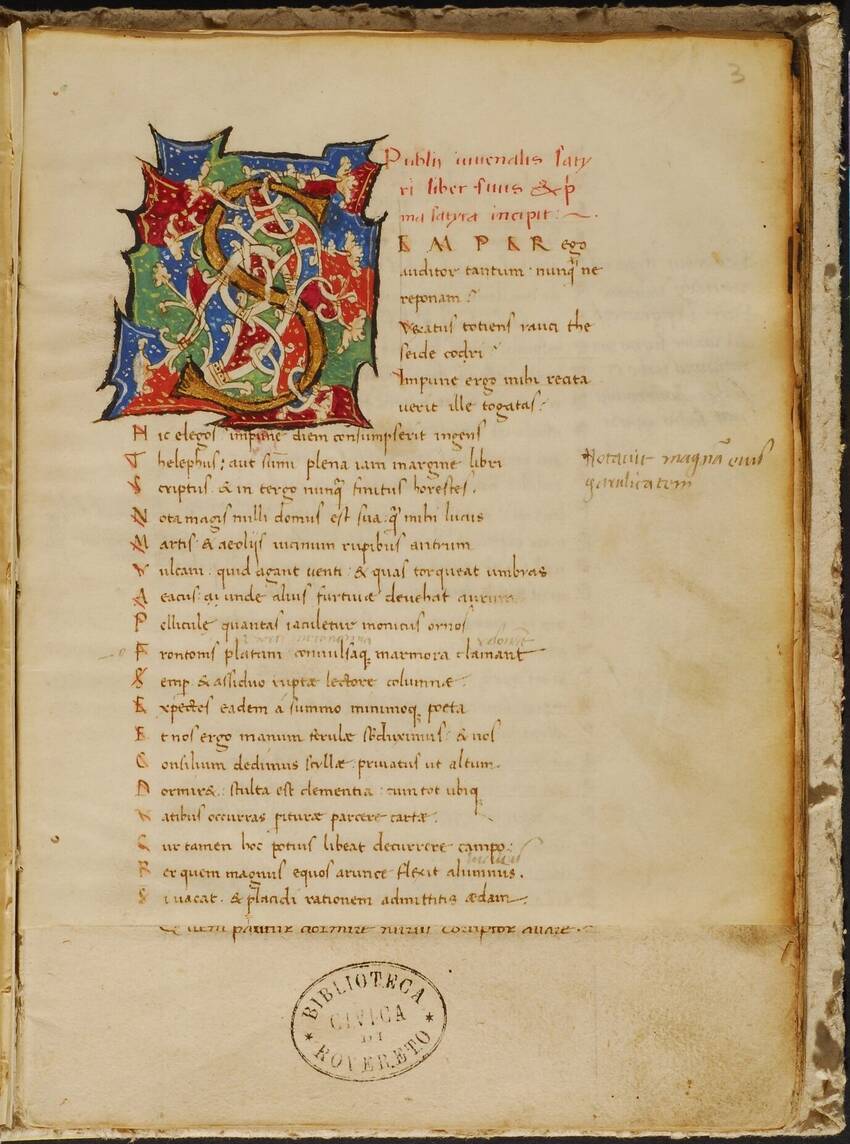 3
Publii iuuenalis saty
ri liber suus & p
ma satyra incipit:
S E M P E R ego
auditor tantum nunq̃ ne
reponam?
Vexatus totiens rauci the
seide codri?
Impune ergo mihi recita
uerit ille togatas?
Hic elegos impune diem consumpserit ingens
Thelephus: aut summi plena iam margine libri
Scriptus & in tergo nunq̃ finitus horestes.
Nota magis nulli domus est sua q̃ mihi lucus
Martis & aeolijs uicinum rupibus antrum
Vulcani quid agant uenti & quas torqueat umbras
Aeacus: qi unde alius furtiuæ deuehat aurum
Pelliculę quantas iaculetur monicus ornos
Frontonis platani conuulsaq; marmora clamant
Semp & assiduo ruptæ lectore columnæ.
Expectes eadem a summo minimoq; poeta
Et nos ergo manum ferulæ subduximus & nos
Consilium dedimus scyllæ priuatus ut altum
Dormiret stulta est clementia cum tot ubiq;
Vatibus occurras pituræ parcere cartæ.
Cur tamen hoc potius libeat decurrere campo:
Per quem magnus equos arunce flexit alumnus.
Si uacat & placidi rationem admittitis ædam
Notauit magnã eius
garulitatem
BIBLIOTECA
CIVICA
DI
ROVERETO